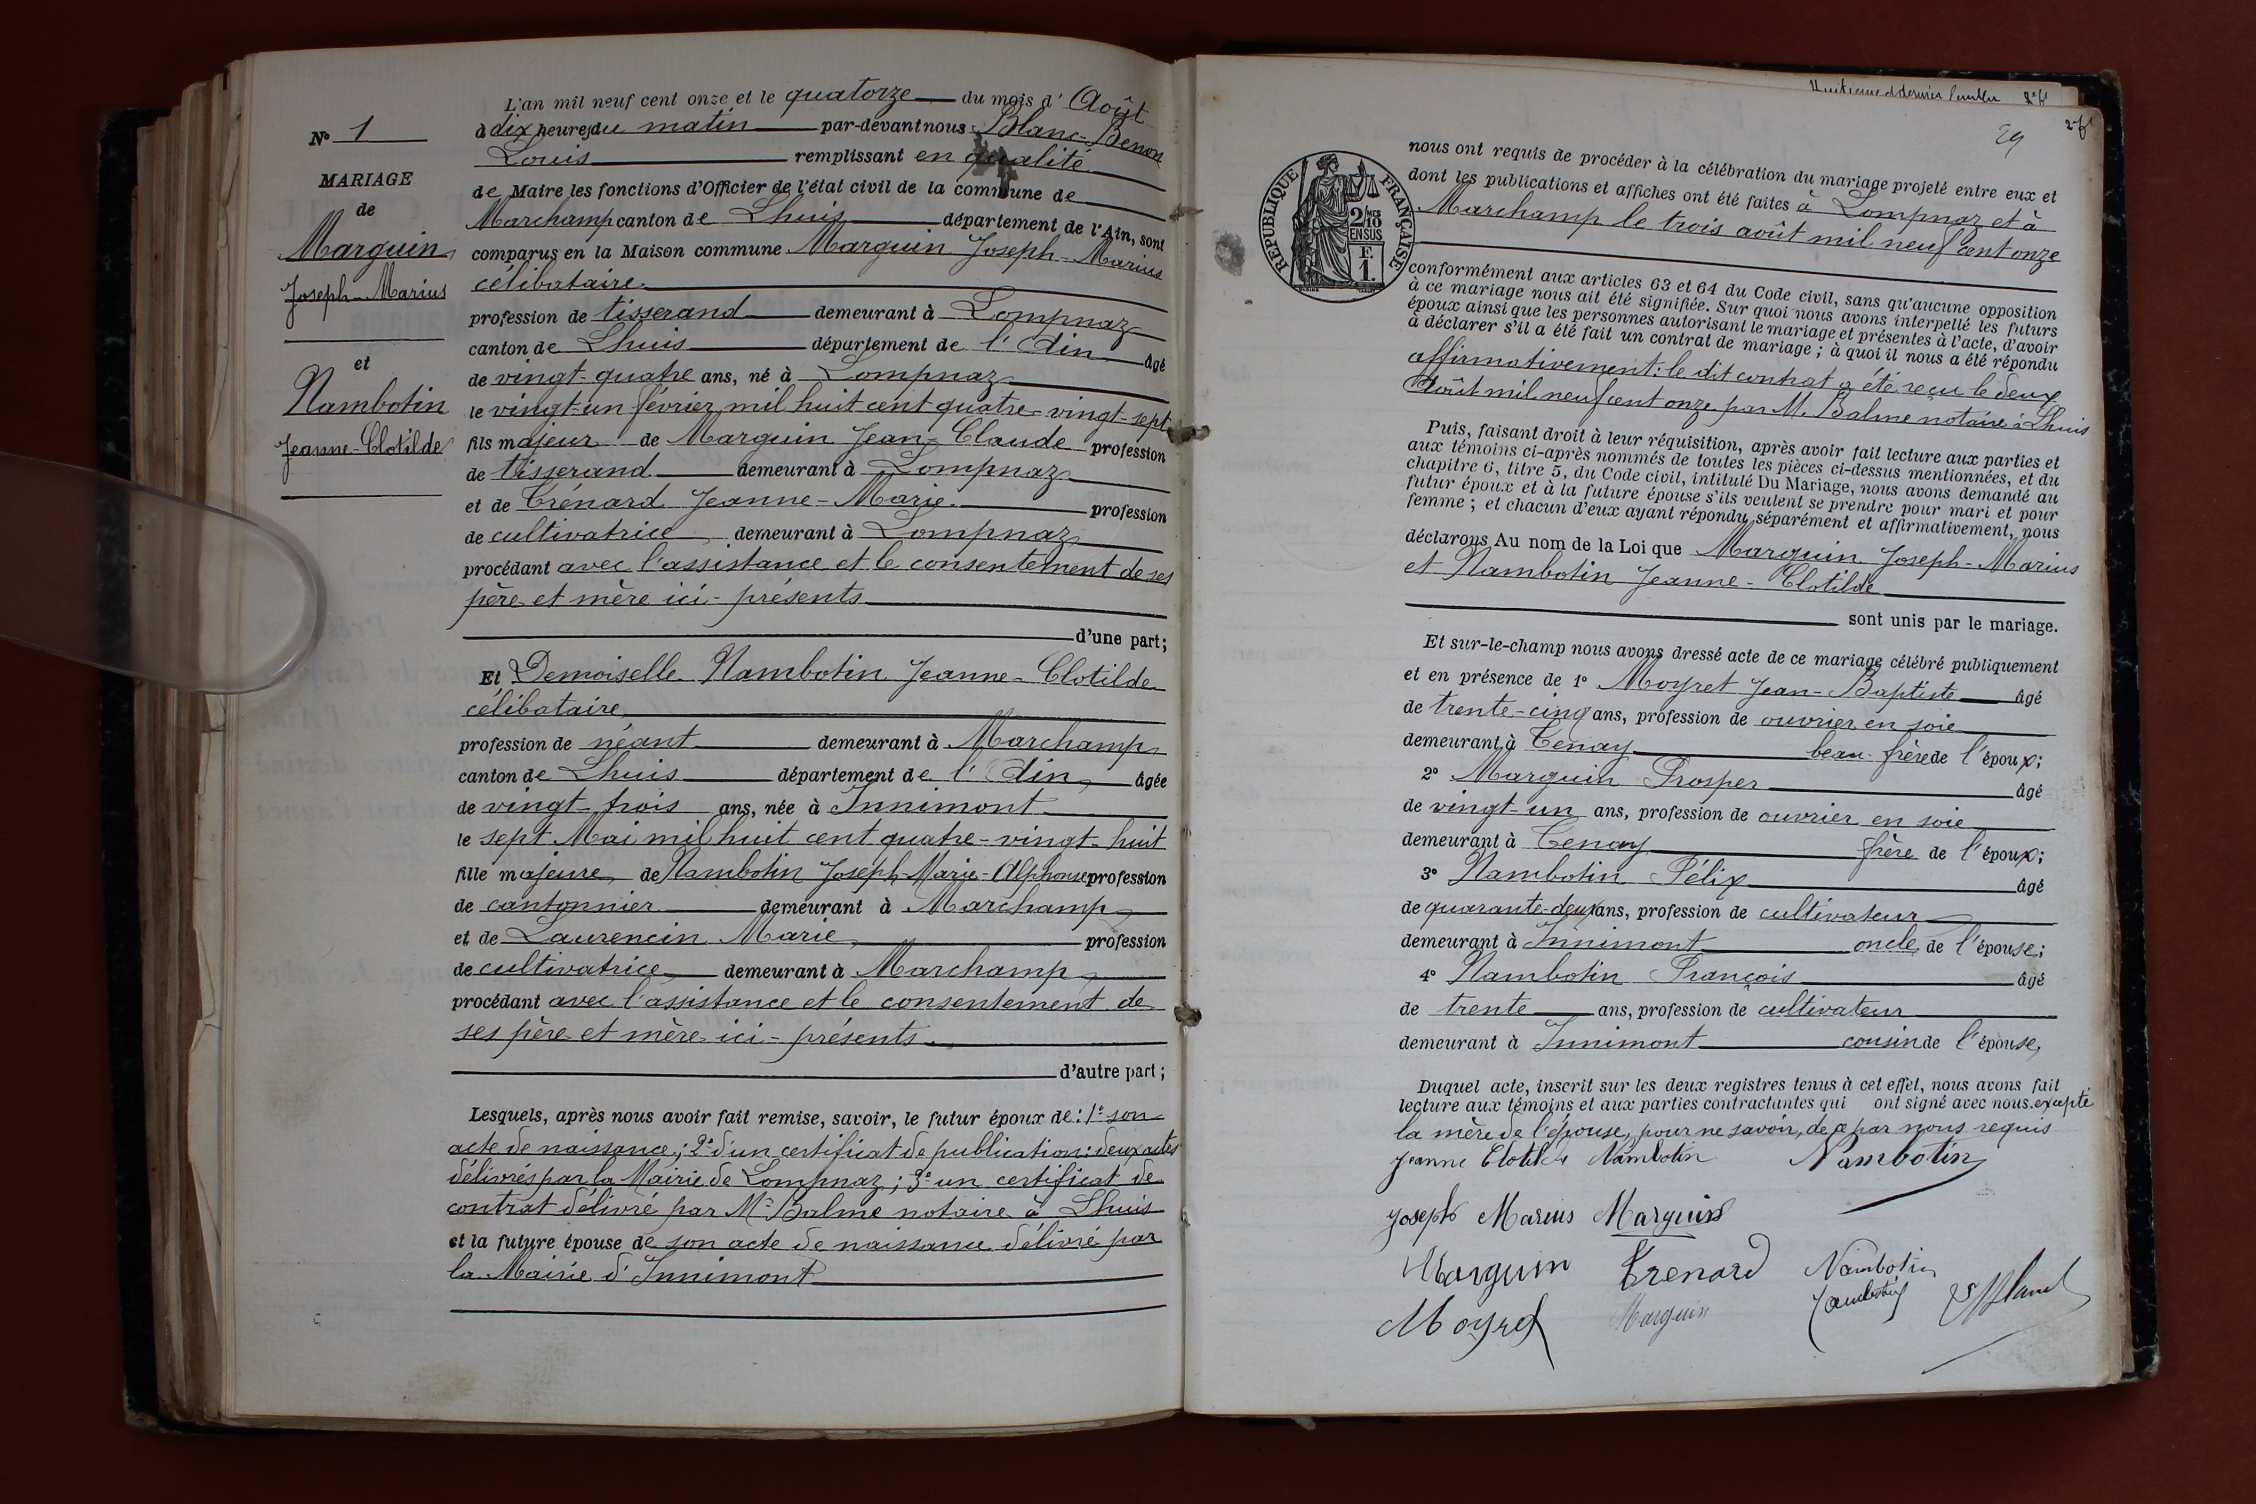 N° 1
MARIAGE
de
Marguin
Joseph-Marius
et
Nambotin
Jeanne-Clotilde
L'an mil neuf cent onze et le quatorze du mois d' Août
à dix heures du matin par-devant nous Blanc-Benon
Louis remplissant en qualité
de Maire les fonctions d'Officier de l'état civil de la commune de
Marchamp canton de Lhuis département de l'Ain, sont
comparus en la Maison commune Marguin Joseph-Marius
célibataire
profession de tisserand demeurant à Lompnaz
canton de Lhuis département de l'Ain âgé
de vingt-quatre ans, né à Lompnaz
le vingt-un février mil huit cent quatre-vingt-sept
fils majeur de Marguin Jean-Claude profession
de tisserand demeurant à Lompnaz
et de Trénard Jeanne-Marie profession
de cultivatrice demeurant à Lompnaz
procédant avec l'assistance et le consentement de ses
père et mère ici-présents
d'une part;
Et Demoiselle Nambotin Jeanne-Clotilde
célibataire
profession de néant demeurant à Marchamp
canton de Lhuis département de l'Ain âgée
de vingt-trois ans, née à Innimont
le sept Mai mil huit cent quatre-vingt-huit
fille majeure de Nambotin Joseph Marie-Alphonse profession
de cantonnier demeurant à Marchamp
et de Laurencin Marie profession
de cultivatrice demeurant à Marchamp
procédant avec l'assistance et le consentement de
ses père et mère ici-présents
d'autre part;
Lesquels, après nous avoir fait remise, savoir, le futur époux de: 1° son
acte de naissance; 2° d'un certificat de publication: deux actes
délivrés par la Mairie de Lompnaz; 3° un certificat de
contrat délivré par Me Balme notaire à Lhuis
et la future épouse de son acte de naissance délivré par
la Mairie d'Innimont
29
RÉPUBLIQUE FRANÇAISE
2/10 MES
EN SUS
F.
1.
nous ont requis de procéder à la célébration du mariage projeté entre eux et
dont les publications et affiches ont été faites à Lompnaz et à
Marchamp le trois août mil neuf cent onze
conformément aux articles 63 et 64 du Code civil, sans qu'aucune opposition
à ce mariage nous ait été signifiée. Sur quoi nous avons interpellé les futurs
époux ainsi que les personnes autorisant le mariage et présentes à l'acte, d'avoir
à déclarer s'il a été fait un contrat de mariage; à quoi il nous a été répondu
affirmativement: le dit contrat a été reçu le deux
Août mil neuf cent onze par M. Balme notaire à Lhuis
Puis, faisant droit à leur réquisition, après avoir fait lecture aux parties et
aux témoins ci-après nommés de toutes les pièces ci-dessus mentionnées, et du
chapitre 6, titre 5, du Code civil, intitulé Du Mariage, nous avons demandé au
futur époux et à la future épouse s'ils veulent se prendre pour mari et pour
femme; et chacun d'eux ayant répondu séparément et affirmativement, nous
déclarons Au nom de la Loi que Marguin Joseph-Marius
et Nambotin Jeanne-Clotilde
sont unis par le mariage.
Et sur-le-champ nous avons dressé acte de ce mariage célébré publiquement
et en présence de 1° Moyret Jean-Baptiste âgé
de trente-cinq ans, profession de ouvrier en soie
demeurant à Tenay beau-frère de l'époux;
2° Marguin Prosper âgé
de vingt-un ans, profession de ouvrier en soie
demeurant à Tenay frère de l'époux;
3° Nambotin Félix âgé
de quarante-deux ans, profession de cultivateur
demeurant à Innimont oncle de l'épouse;
4° Nambotin François âgé
de trente ans, profession de cultivateur
demeurant à Innimont cousin de l'épouse,
Duquel acte, inscrit sur les deux registres tenus à cet effet, nous avons fait
lecture aux témoins et aux parties contractantes qui ont signé avec nous. excepté
la mère de l'épouse, pour ne savoir, de ce par nous requis
Jeanne Clotilde Nambotin Nambotin
Joseph Marius Marguin
Marguin Trenard Nambotin
Moyret Marguin Nambotin